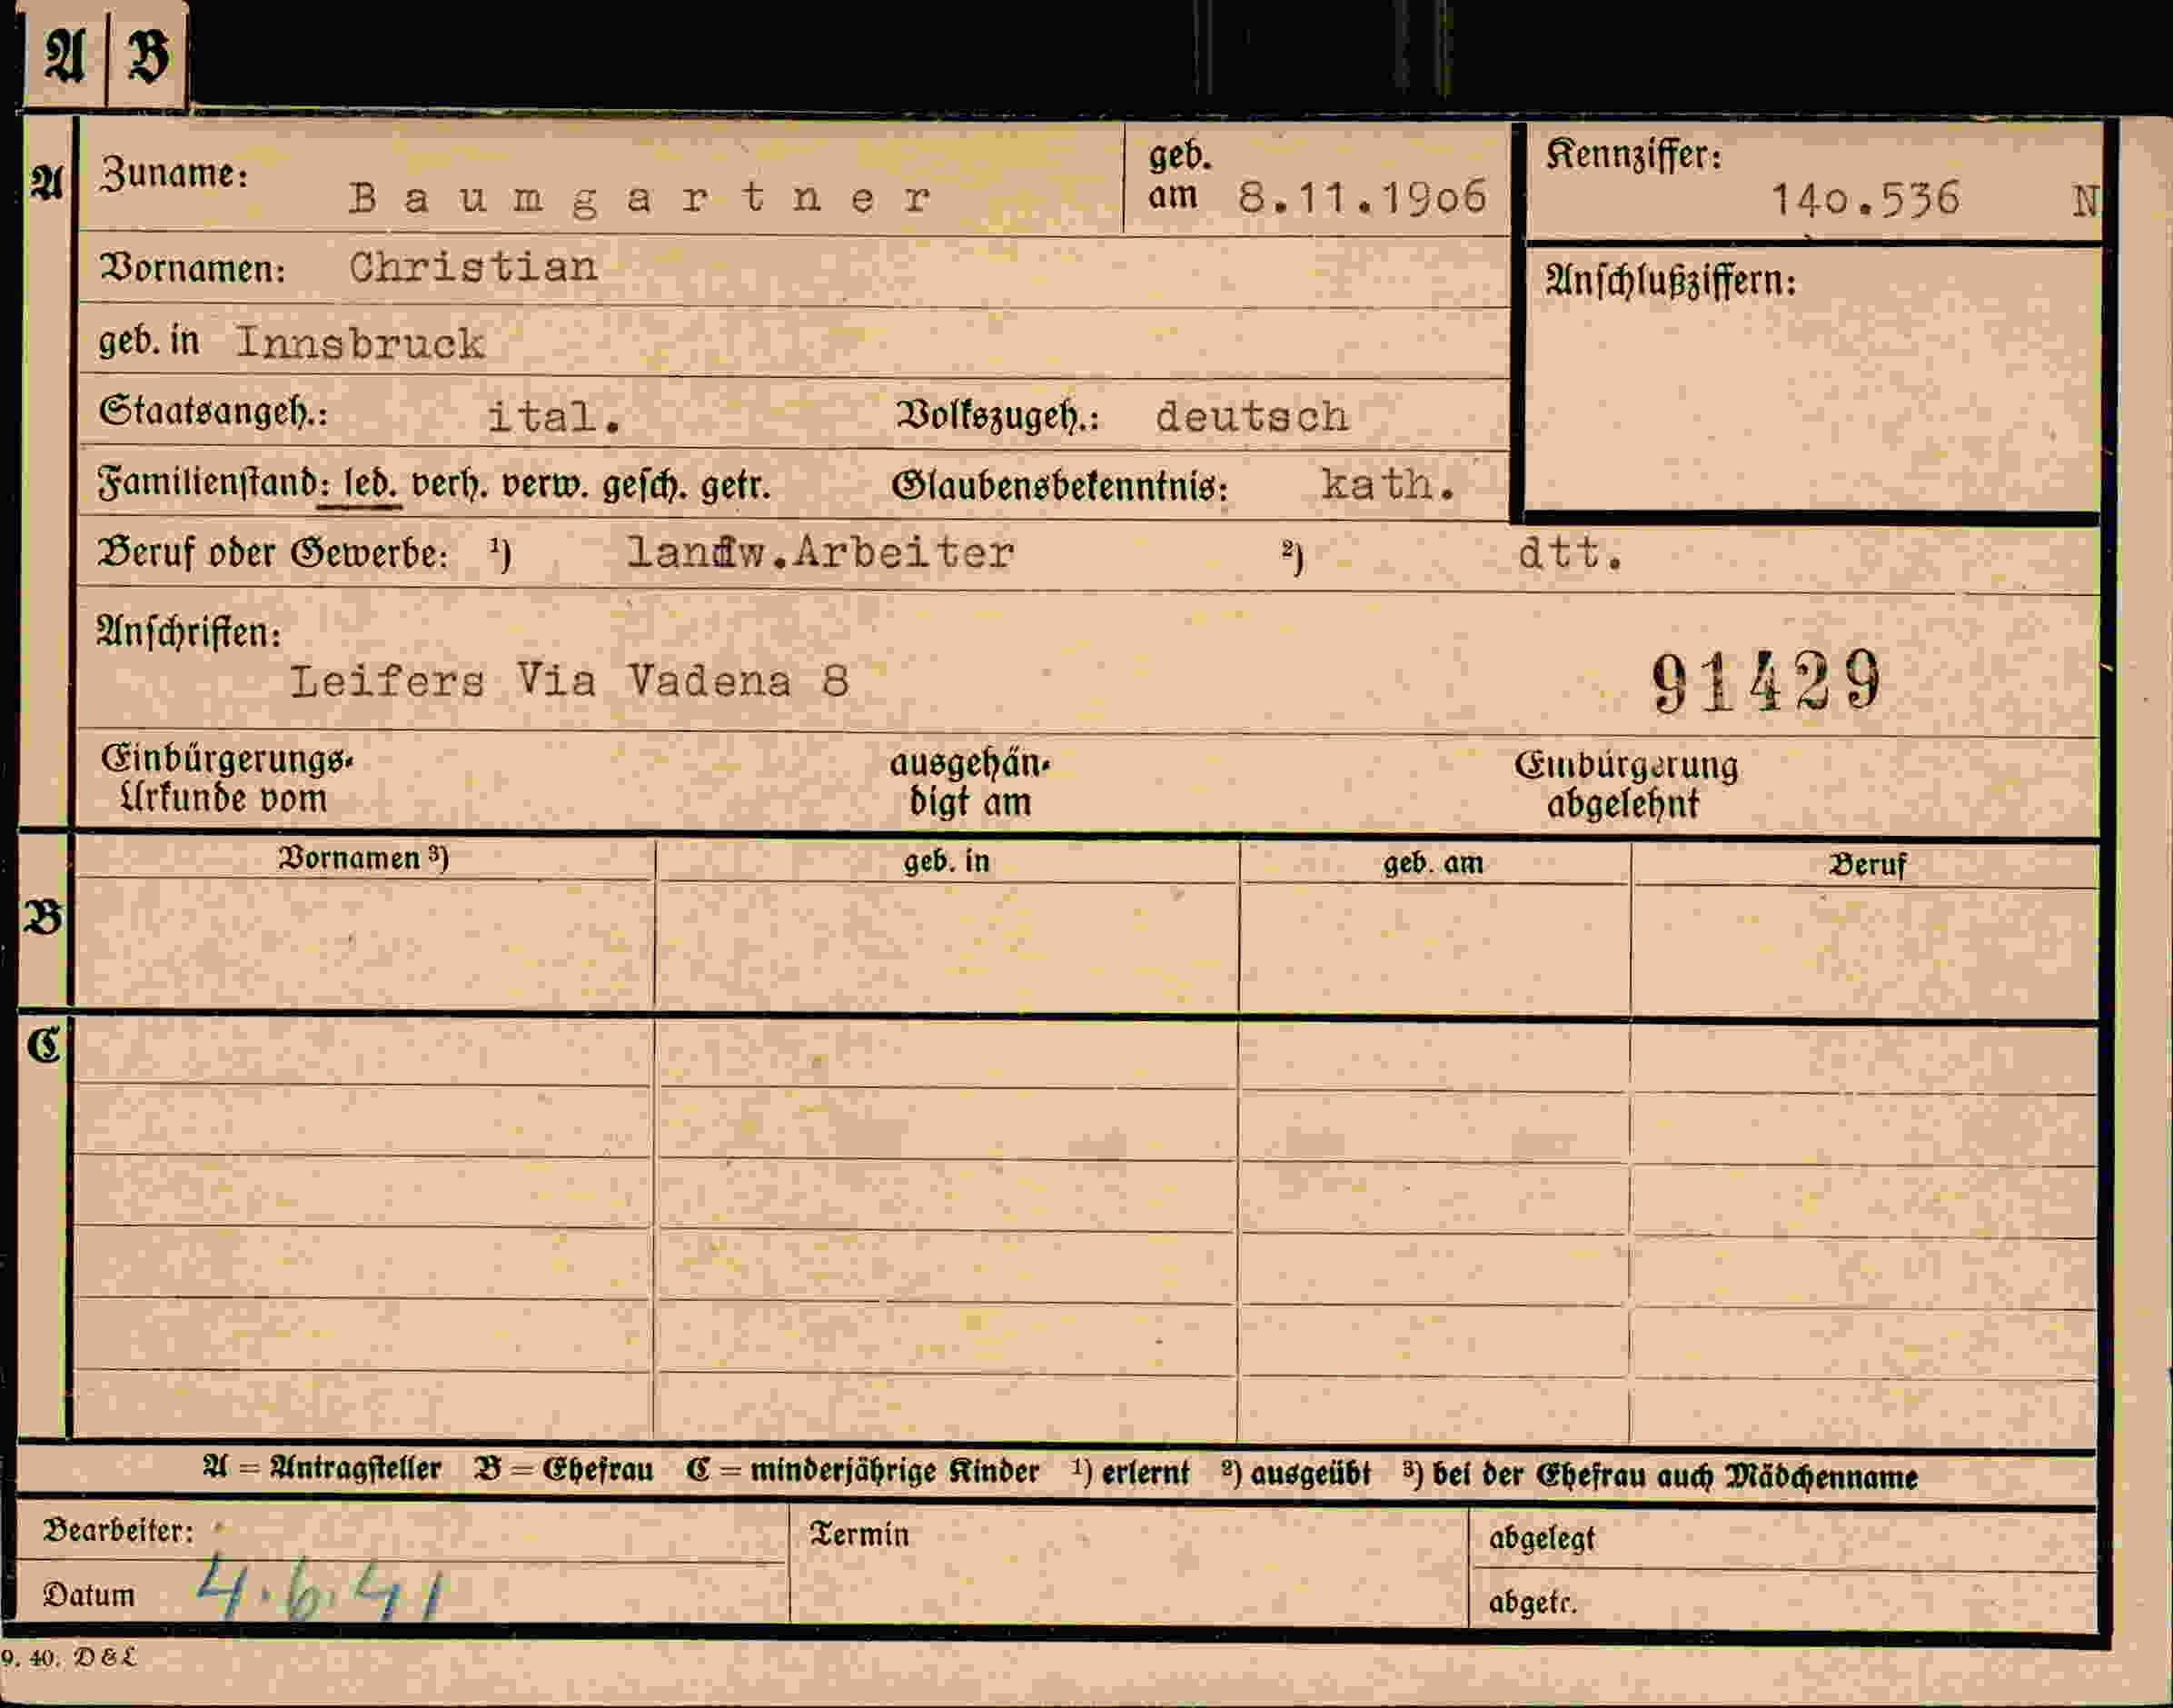 A B
A Zuname: Baumgartner geb. am 8.11.1906 Kennziffer: 140.536 N
Vornamen: Christian Anschlußziffern:
geb. in Innsbruck
Staatsangeh.: ital. Volkszugeh.: deutsch
Familienstand: led. verh. verw. gesch. getr. Glaubensbekenntnis: kath.
Beruf oder Gewerbe: ¹) landw.Arbeiter ²) dtt.
Anschriften:
Leifers Via Vadena 8 91429
Einbürgerungs- ausgehän- Einbürgerung
Urkunde vom digt am abgelehnt
Vornamen ³) geb. in geb. am Beruf
B
C
A = Antragsteller B = Ehefrau C = minderjährige Kinder ¹) erlernt ²) ausgeübt ³) bei der Ehefrau auch Mädchenname
Bearbeiter: Termin abgelegt
Datum 4.6.41 abgetr.
9. 40. D & L